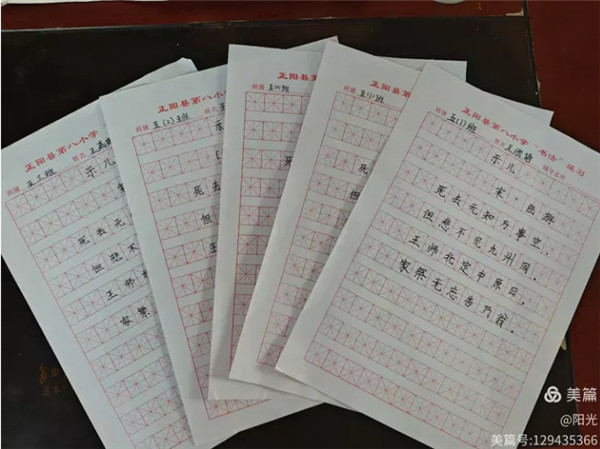 正阳县第八小学
班级 五三班 姓名
示儿
死去元
但悲不
王师
家祭
正阳县第八小
班级 五(2)班 姓名 王
示
死
但
正阳县第
班级
死
但
正阳县第
班级
正阳县第八小学“书法”练习
班级 五(1)班 姓名 王欣 辅导老师
示儿
宋·陆游
死去元知万事空，
但悲不见九州同。
王师北定中原日，
家祭无忘告乃翁。
美篇
@阳光
美篇号:129435366